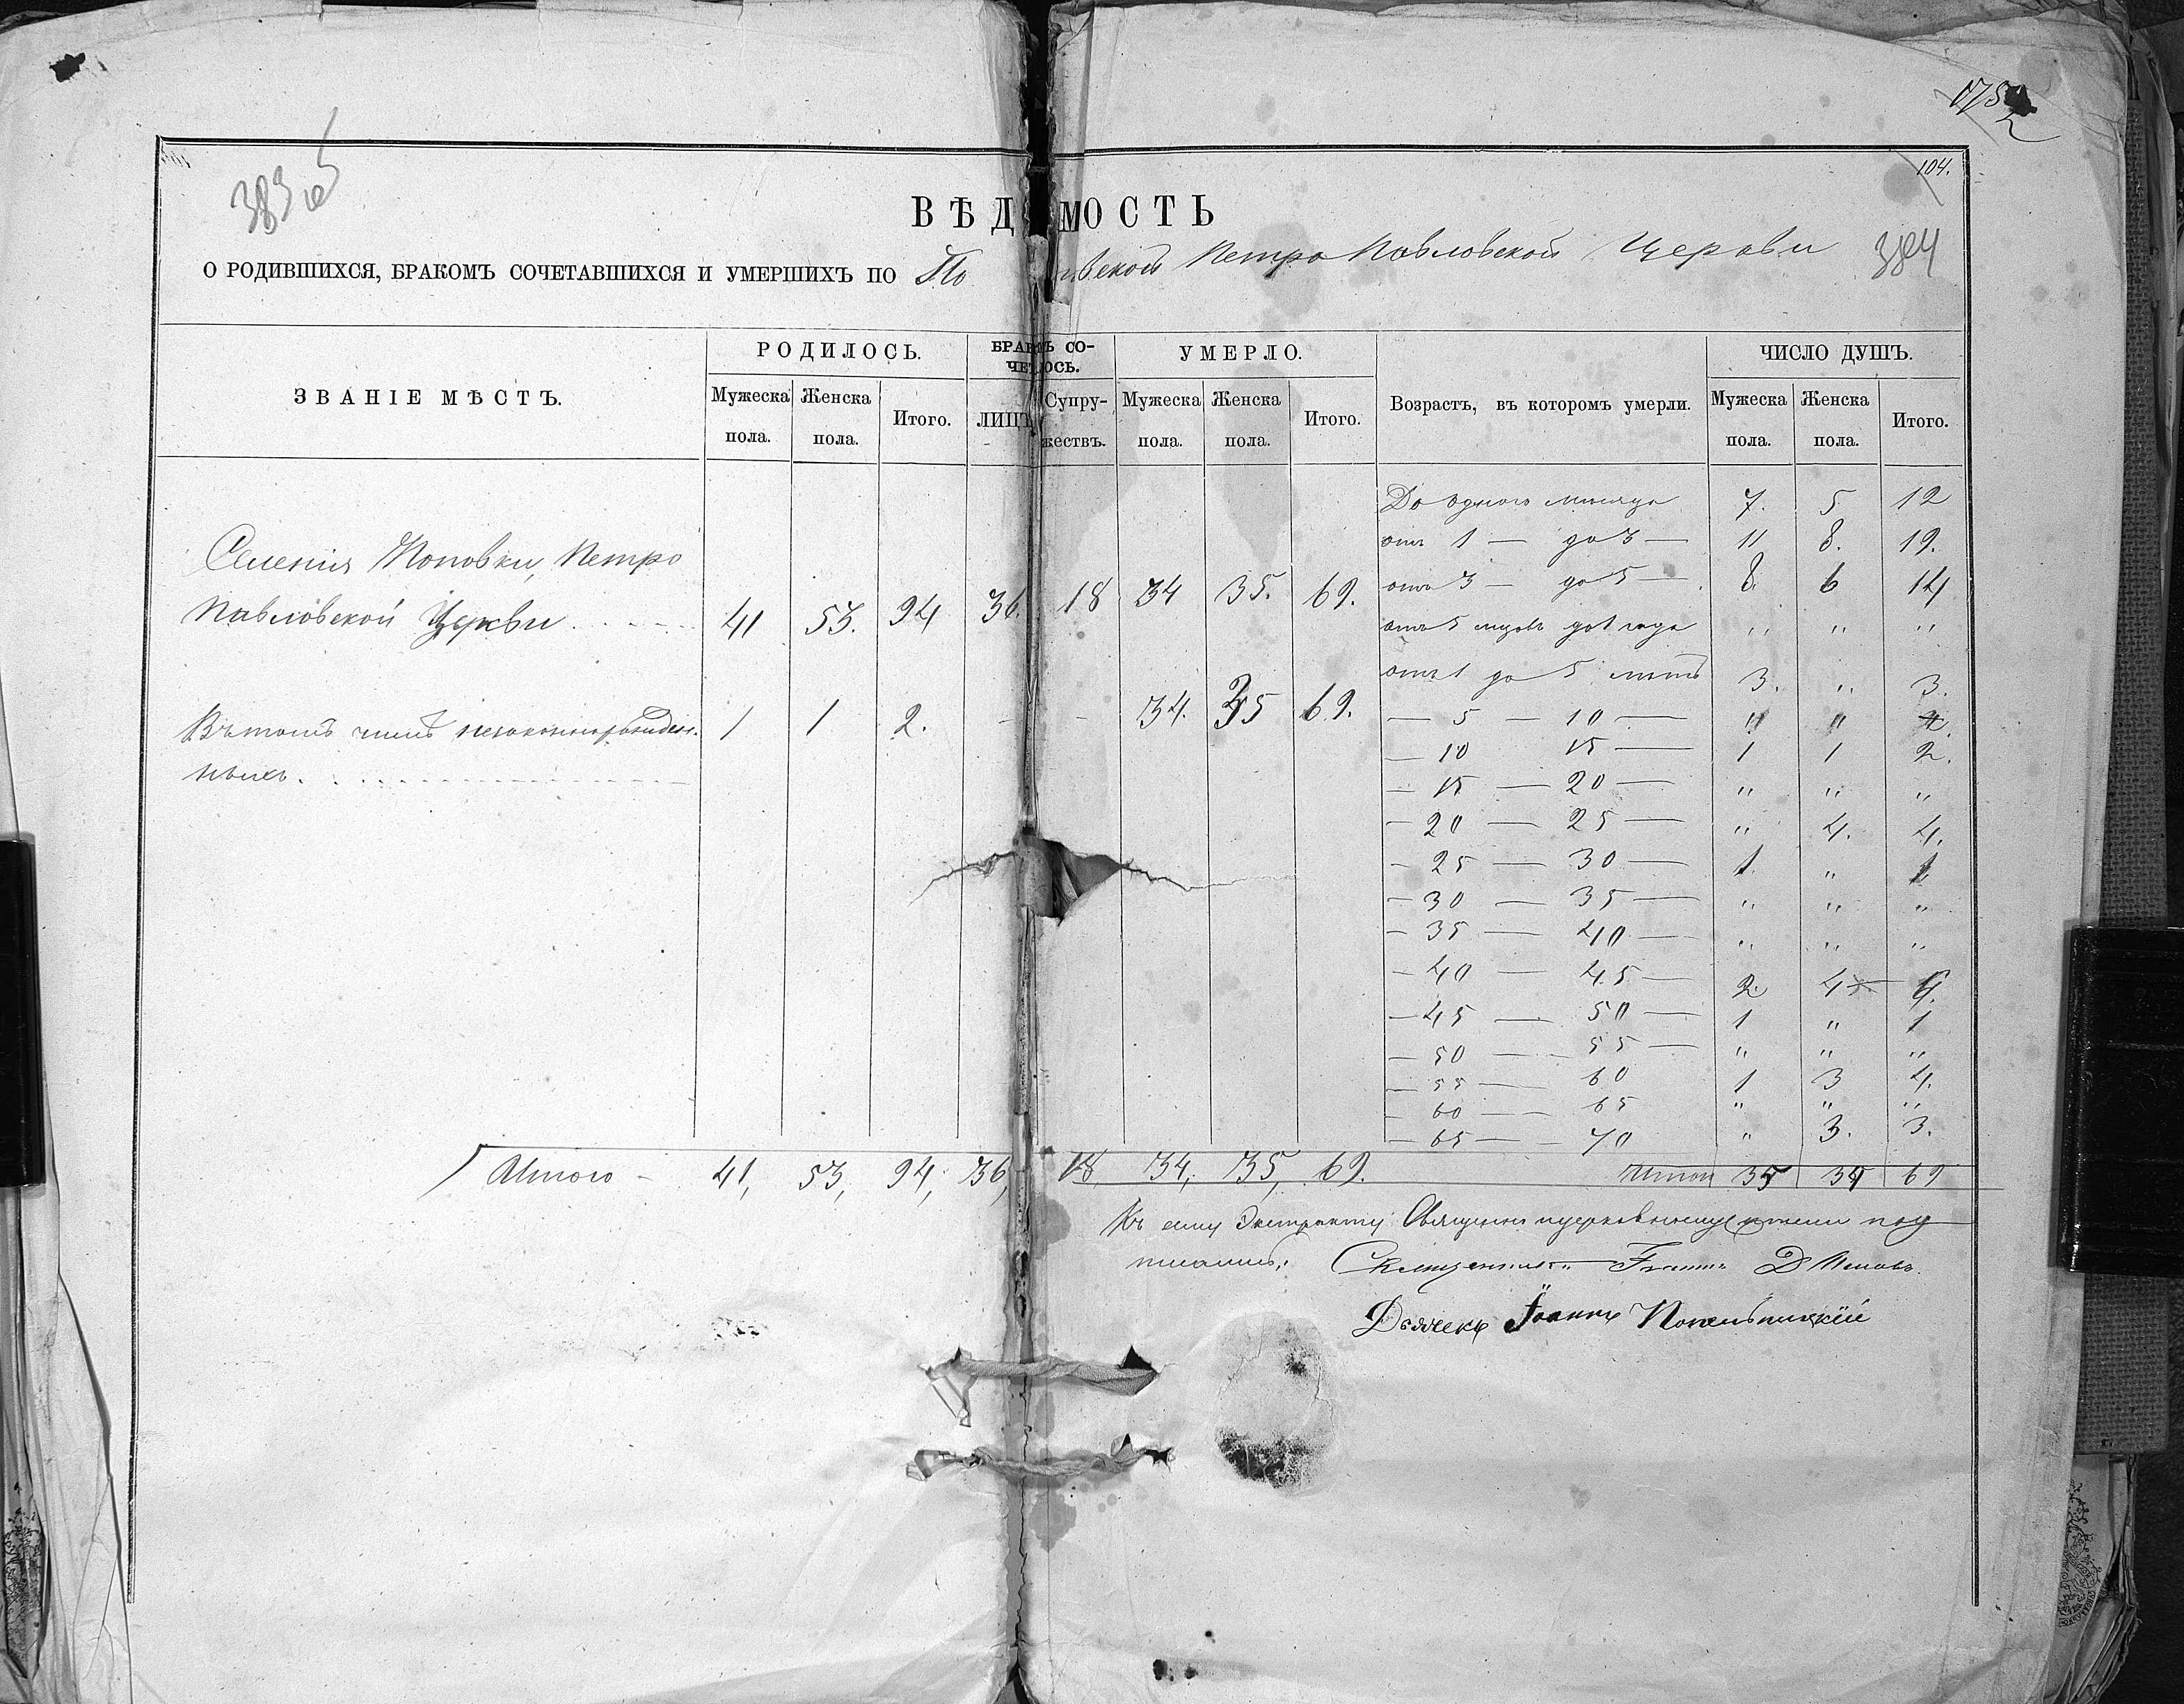 175
2
104.
383 об
ВѢДОМОСТЬ
О РОДИВШИХСЯ, БРАКОМЪ СОЧЕТАВШИХСЯ И УМЕРШИХЪ ПО По вской Петро Павловской Церкви 384
ЗВАНІЕ МѢСТЪ. РОДИЛОСЬ. БРАКОМЪ СО- УМЕРЛО. Возрастъ, въ которомъ умерли. ЧИСЛО ДУШЪ.
ЧЕТЛОСЬ.
Мужеска Женска Итого. ЛИЦЪ Супру- Мужеска Женска Итого. Мужеска Женска Итого.
пола. пола. жествъ. пола. пола. пола. пола.
До одного месяца 7. 5 12
отъ 1 — до 3 — 11 8. 19.
Селенія Поповки, Петро
отъ 3 — до 5 — 8. 6 14
Павловской Церкви 41 53. 94 36. 18 34 35. 69.
отъ 5 до 1 года " " "
отъ 1 до 5 летъ 3. " 3.
Въ томъ числѣ незаконнорожден- 1 1 2. - - 34. 35 69.
ныхъ.
— 5 — 10 — " "
— 10 15 — 1 1 2.
— 15 — 20 — " " "
— 20 — 25 — " 4. 4.
— 25 — 30 — 1. " 1
— 30 — 35 — " " "
— 35 — 40 — " " "
— 40 — 45 — 2. 4 6.
— 45 — 50 — 1 " 1
— 50 — 55 — " " "
— 55 — 60 1 3 4.
— 60 — 65 " " "
— 65 — 70 " 3. 3.
Итого - 41, 53, 94, 36, 18 34, 35, 69. Итого 35 34 69
Къ сему Экстракту под
писались: Священникъ Поповъ
Дьячекъ Іоаннъ